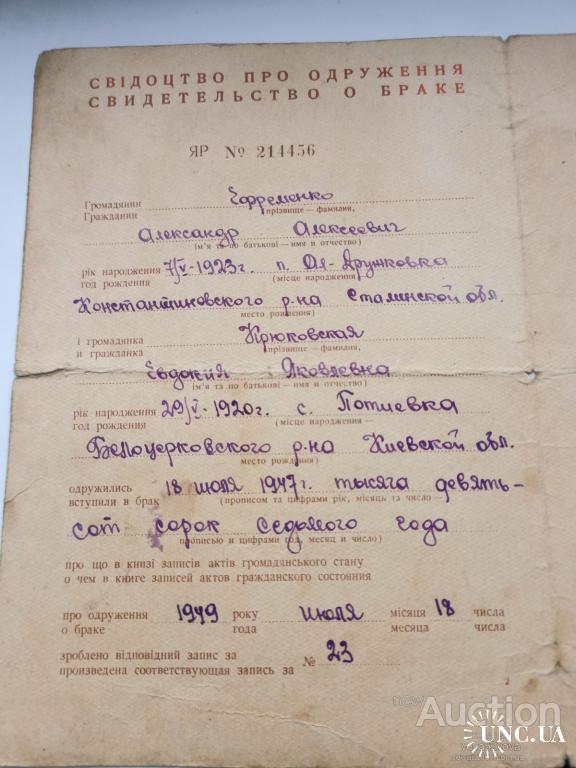 СВІДОЦТВО ПРО ОДРУЖЕННЯ
СВИДЕТЕЛЬСТВО О БРАКЕ
ЯР № 214456
Громадянин Ефременко
Гражданин прізвище — фамилия,
Александр Алексеевич
(ім'я та по батькові — имя и отчество)
рік народження 7/V-1923г. п. Ал-Дружковка
год рождения (місце народження —
Константиновского р-на Сталинской обл.
место рождения)
і громадянка Крюковская
и гражданка прізвище — фамилия,
Евдокия Яковлевна
(ім'я та по батькові — имя и отчество)
рік народження 29/V-1920г. с. Потиевка
год рождения (місце народження —
Белоцерковского р-на Киевской обл.
место рождения)
одружились 18 июля 1947г. тысяча девять-
вступили в брак (прописом та цифрами рік, місяць та число —
сот сорок седьмого года
прописью и цифрами год, месяц и число)
про що в книзі записів актів громадянського стану
о чем в книге записей актов гражданского состояния
про одруження 1949 року июля місяця 18 числа
о браке года месяца числа
зроблено відповідний запис за № 23
произведена соответствующая запись за
2
Auction
UNC.UA